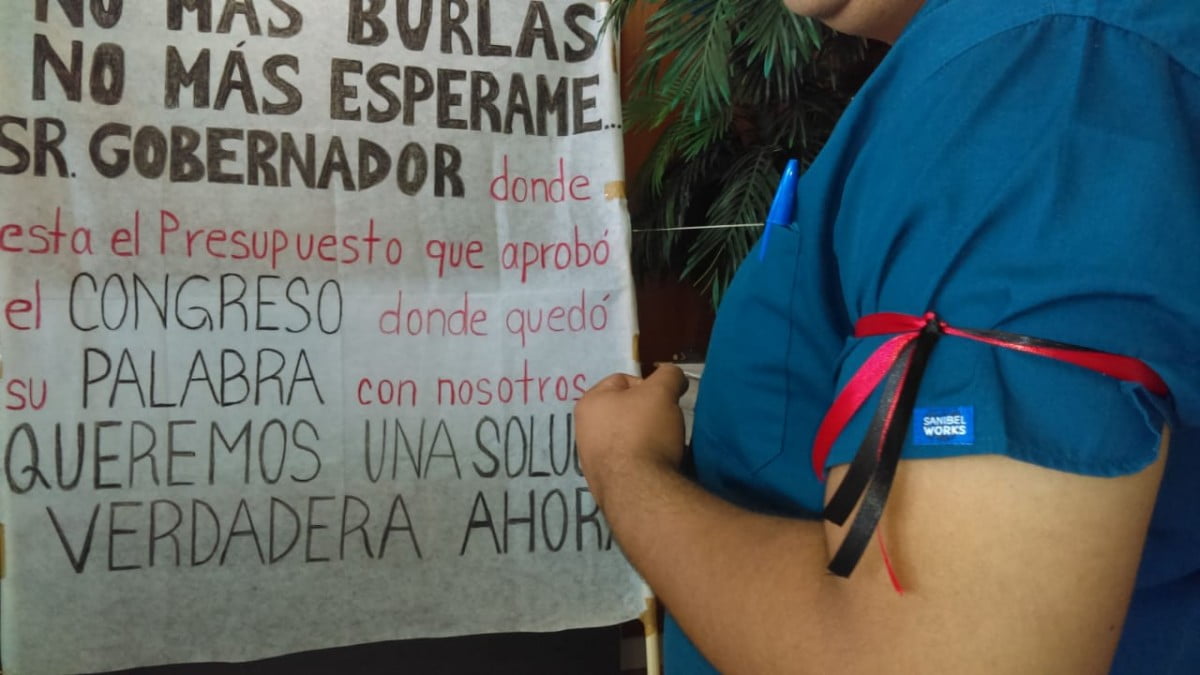 NO MAS BURLAS
NO MÁS ESPERAME...
SR. GOBERNADOR donde
esta el Presupuesto que aprobó
el CONGRESO donde quedó
su PALABRA con nosotros
QUEREMOS UNA SOLUC
VERDADERA AHORA
SANIBEL
WORKS